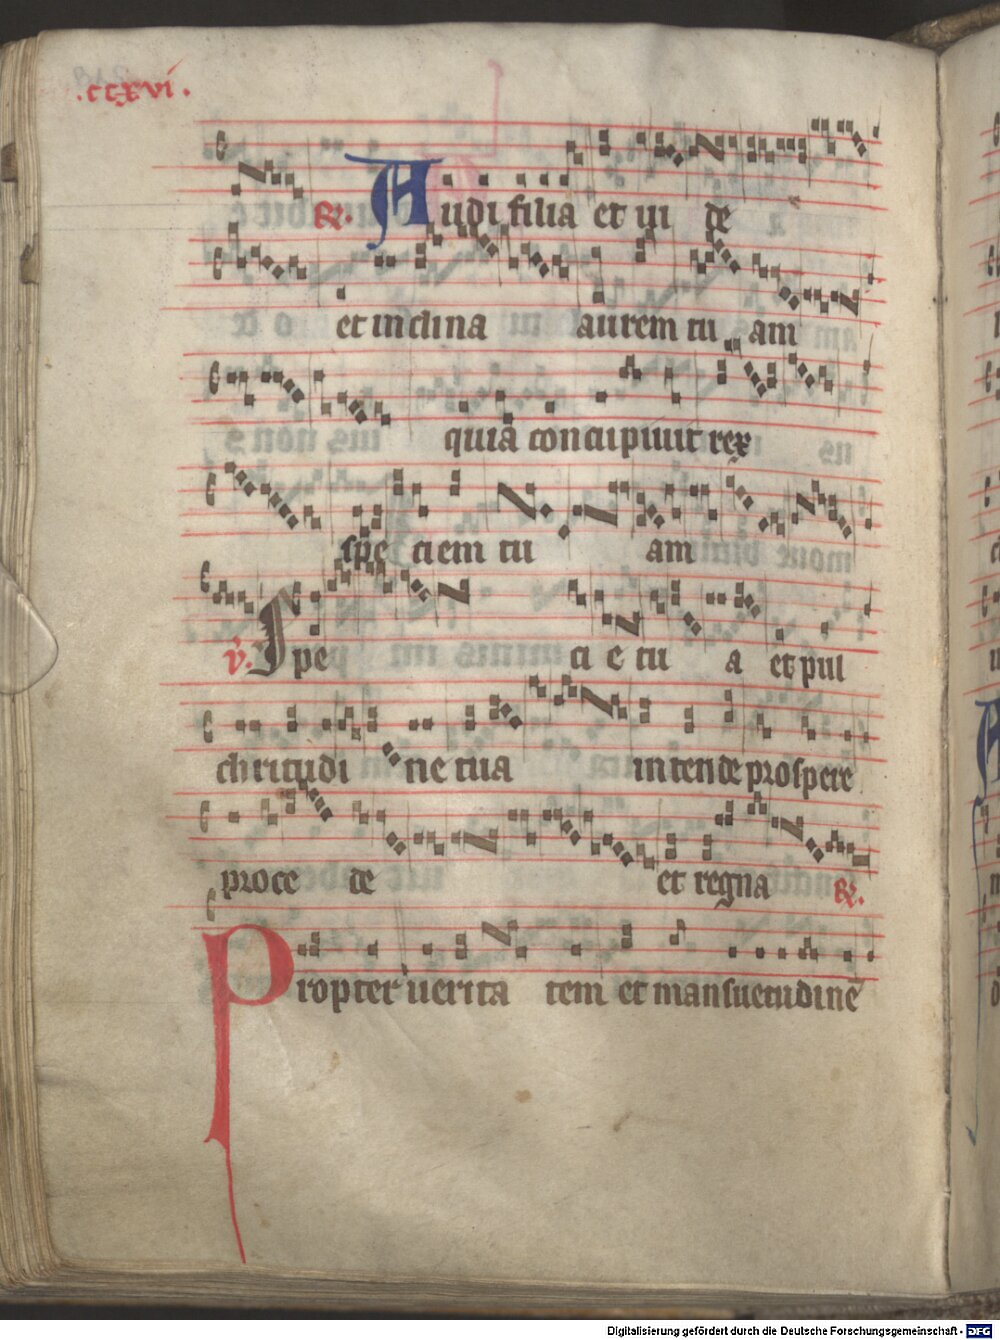 .ccxvi.
℞. Audi filia et ui de
et inclina aurem tu am
quia concupiuit rex
spe ciem tu am
℣. Spe ci e tu a et pul
chritudi ne tua intende prospere
proce de et regna ℞.
Propter uerita tem et mansuetudinē
Digitalisierung gefördert durch die Deutsche Forschungsgemeinschaft - DFG